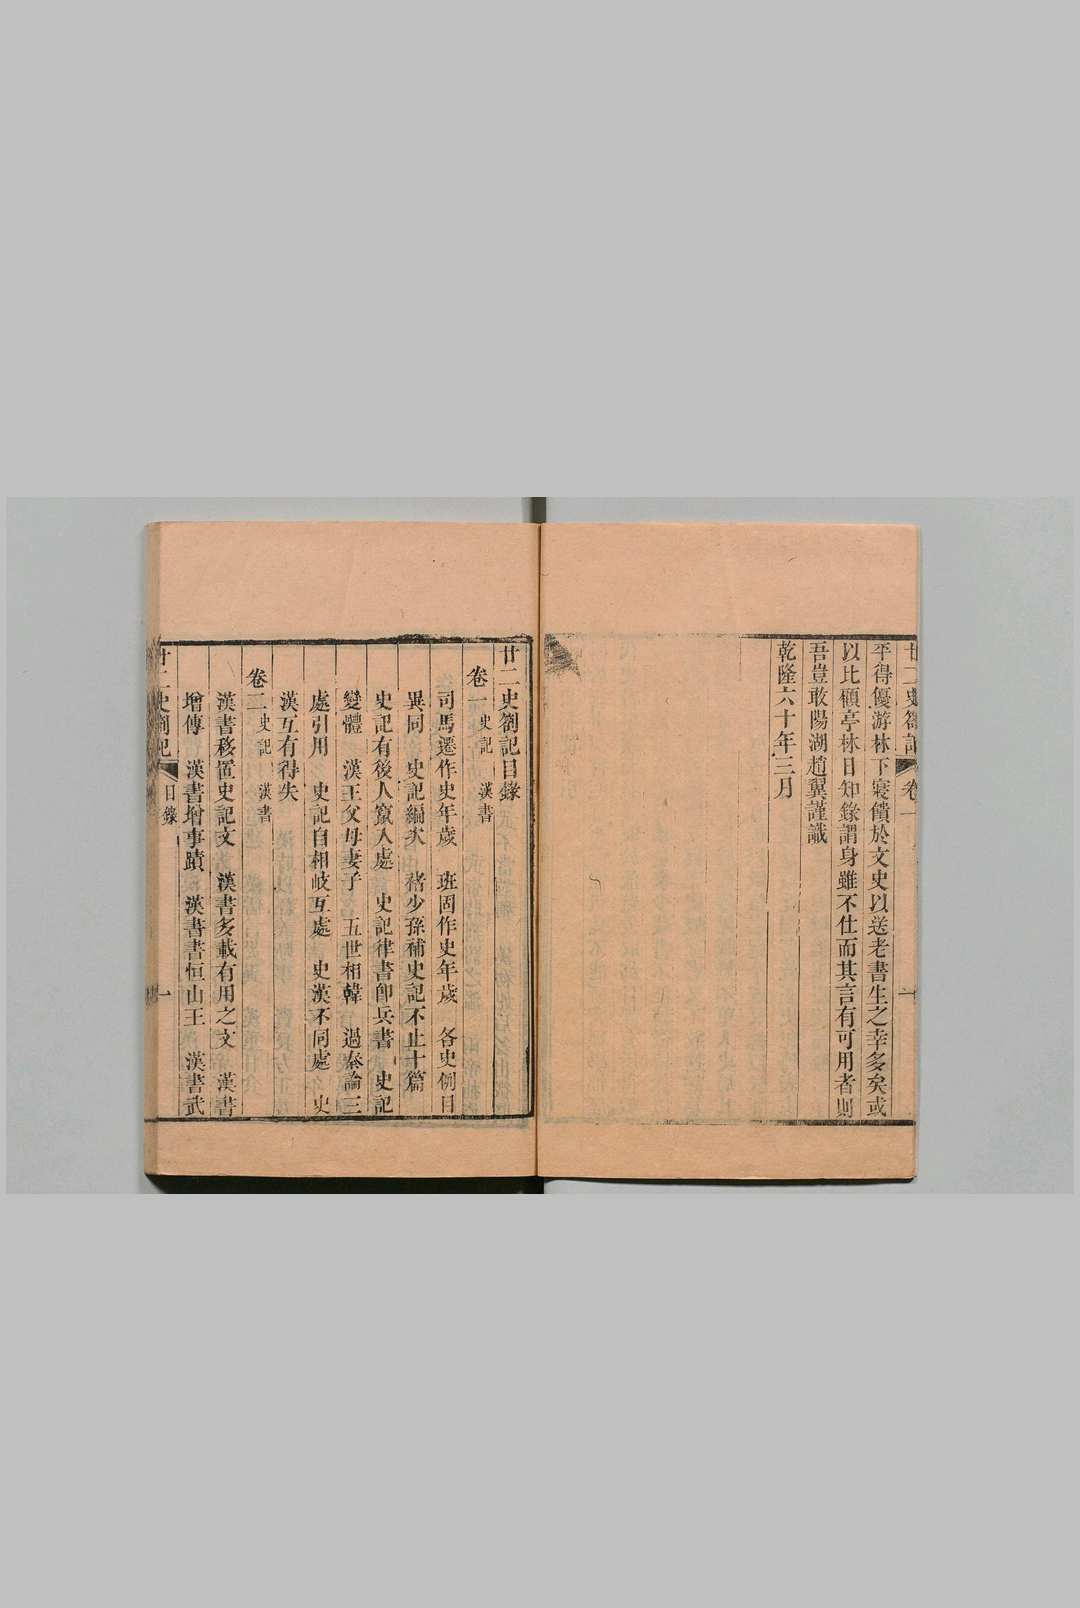 廿二史劄記 卷一 一
平得優游林下寢饋於文史以送老書生之幸多矣或
以比顧亭林日知錄謂身雖不仕而其言有可用者則
吾豈敢陽湖趙翼謹識
乾隆六十年三月
廿二史劄記目錄
卷一 史記 漢書
司馬遷作史年歲 班固作史年歲 各史例目
異同 史記編次 褚少孫補史記不止十篇
史記有後人竄入處 史記律書卽兵書 史記
變體 漢王父母妻子 五世相韓 過秦論三
處引用 史記自相岐互處 史漢不同處 史
漢互有得失
卷二 史記 漢書
漢書移置史記文 漢書多載有用之文 漢書
增傳 漢書增事蹟 漢書書恒山王 漢書武
廿二史劄記 目錄 一